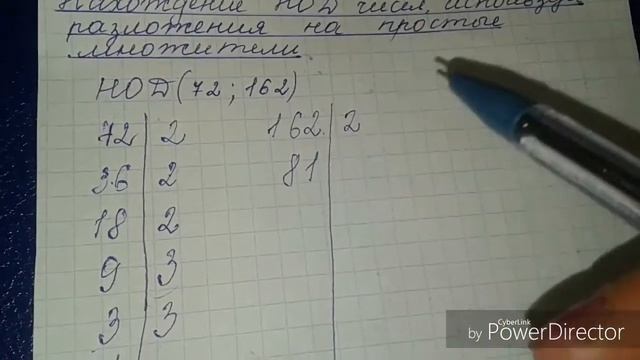 Нахождение НОД чисел, используя
разложения на простые
множители.
НОД (72 ; 162)
72 | 2 162 | 2
36 | 2 81
18 | 2
9 | 3
3 | 3
CyberLink
by PowerDirector